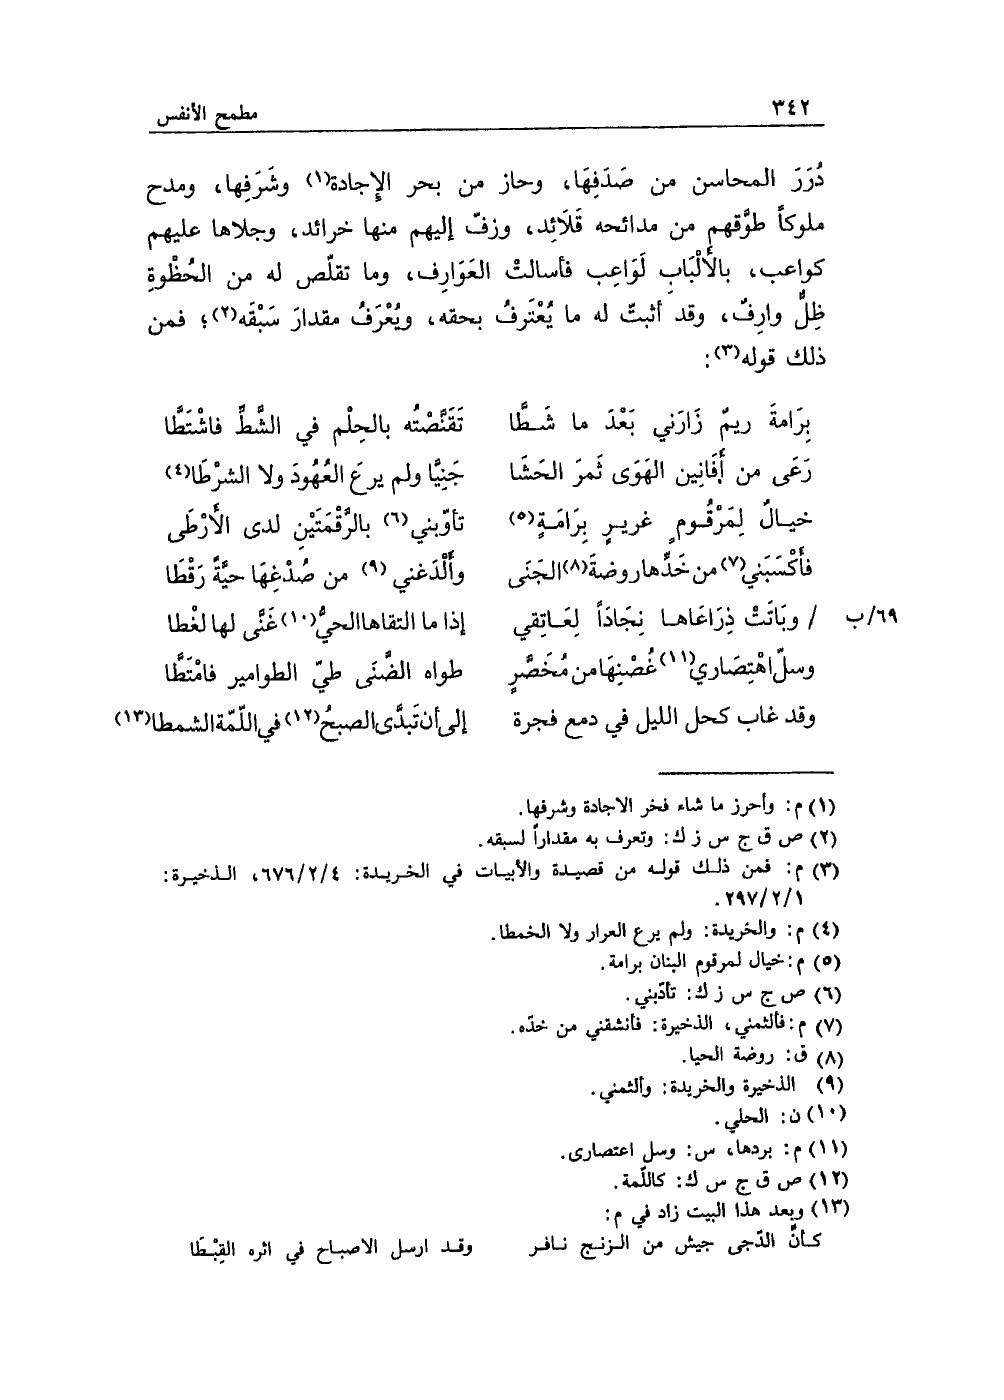 ٣٤٢ مطمح الأنفس
دُرَرَ المحاسن من صَدَفِهَا، وحاز من بحر الإِجادة(١) وشَرَفِها، ومدح
ملوكاً طوَّقهم من مدائحه قَلَائِد، وزفّ إليهم منها خرائد، وجلاها عليهم
كواعب، بالأَلْبَابِ لَوَاعِب فأسالتْ العَوَارِف، وما تقلّص له من الحُظْوةِ
ظِلٌّ وارِفٌ، وقد أثبتّ له ما يُعْتَرفُ بحقه، ويُعْرَفُ مقدارَ سَبْقَه(٢)؛ فمن
ذلك قوله(٣):
بِرَامةَ ريمٌ زَارَني بَعْدَ ما شَـطَّا تَقَنَّصْتُه بالحِلْم في الشَّطِّ فاشْتَطَّا
رَعَى من أَفَانِين الهَوَى ثمرَ الحَشَا جَنِيًّا ولم يرعَ العُهُودَ ولا الشرْطَا(٤)
خيـالٌ لِمَرْقُـومٍ غريـرٍ بِرَامَـةٍ(٥) تأوّبني(٦) بالرَّقْمَتَيْنِ لدى الأَرْطَى
فأَكْسَبَني(٧) من خَدِّها روضةَ(٨) الجَنَى وأَلْدَغني(٩) من صُدْغِهَا حيَّةً رَقْطَا
٦٩/ب / وبَاتَتْ ذِرَاعَاهـا نِجَاداً لِعَـاتِقي إذا ما التقاها الحيُّ(١٠) غَنَّى لها لغْطا
وسلّ اهْتِصَاري(١١) غُصْنِهَا من مُخَصَّرٍ طواه الضَّنَى طيّ الطوامير فامْتَطَّا
وقد غاب كحل الليل في دمع فجرة إلى أن تَبدَّى الصبحُ(١٢) في اللّمّة الشمطا(١٣)
(١) م: وأحرز ما شاء فخر الاجادة وشرفها.
(٢) ص ق ج س ز ك: وتعرف به مقداراً لسبقه.
(٣) م: فمن ذلـك قولـه من قصيـدة والأبيـات في الخـريـدة: ٦٧٦/٢/٤، الـذخيـرة:
٢٩٧/٢/١.
(٤) م: والخريدة: ولم يرع العرار ولا الخمطا.
(٥) م: خيال لمرقوم البنان برامة.
(٦) ص ج س ز ك: تأدّبني.
(٧) م: فألثمني، الذخيرة: فأنشقني من خدّه.
(٨) ق: روضة الحيا.
(٩) الذخيرة والخريدة: وألثمني.
(١٠) ن: الحلي.
(١١) م: بردها، س: وسل اعتصارى.
(١٢) ص ق ج س ك: كاللّمة.
(١٣) وبعد هذا البيت زاد في م:
كـأنّ الدّجى جيش من الـزنـج نـافـر وقـد ارسل الاصبـاح في اثره القِبْـطَا